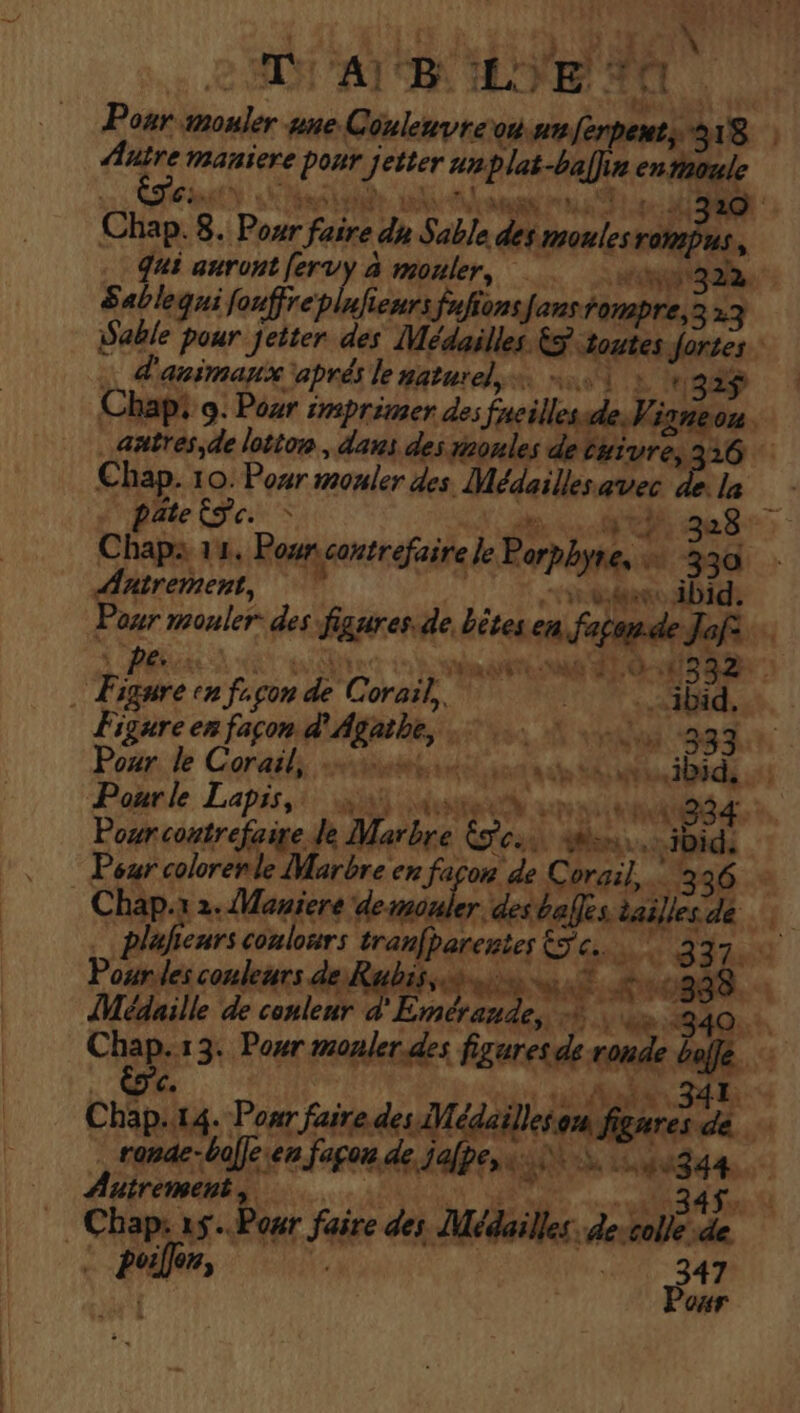 TABLE
Pour mouler une Couleuvre ou un ſerpent, 318
Autre maniere pour jetter un plat-baſſin en moule
&c. 320
Chap. 8. Pour faire du Sable des moules rompus,
qui auront ſervy à mouler, 322
Sable qui ſouffre pluſieurs fuſions ſans rompre, 323
Sable pour jetter des Médailles & toutes ſortes
d'animaux aprés le naturel, 325
Chap. 9. Pour imprimer des fueilles de Vigne ou
autres, de lotton, dans des moules de cuivre, 326
Chap. 10. Pour mouler des Médailles avec de la
pâte &c. 328
Chap. 11. Pour contrefaire le Porphyre, 330
Autrement, ibid.
Pour mouler des figures de bêtes en façon de Jaſ-
pe. 332
Figure en façon de Corail, ibid.
Figure en façon d'Agathe, 333
Pour le Corail, ibid.
Pour le Lapis, 334
Pour contrefaire le Marbre &c. ibid.
Pour colorer le Marbre en façon de Corail, 336
Chap. 12. Maniere de mouler des baſſes tailles de
pluſieurs coulours tranſparentes &c. 337
Pour les couleurs de Rubis, 338
Médaille de couleur d'Emeraude, 340
Chap. 13. Pour mouler des figures de ronde boſſe
&c. 341
Chap. 14. Pour faire des Médailles ou figures de
ronde-boſſe en façon de jaſpe, 344
Autrement, 345
Chap. 15. Pour faire des Médailles de colle de
poiſſon, 347
Pour